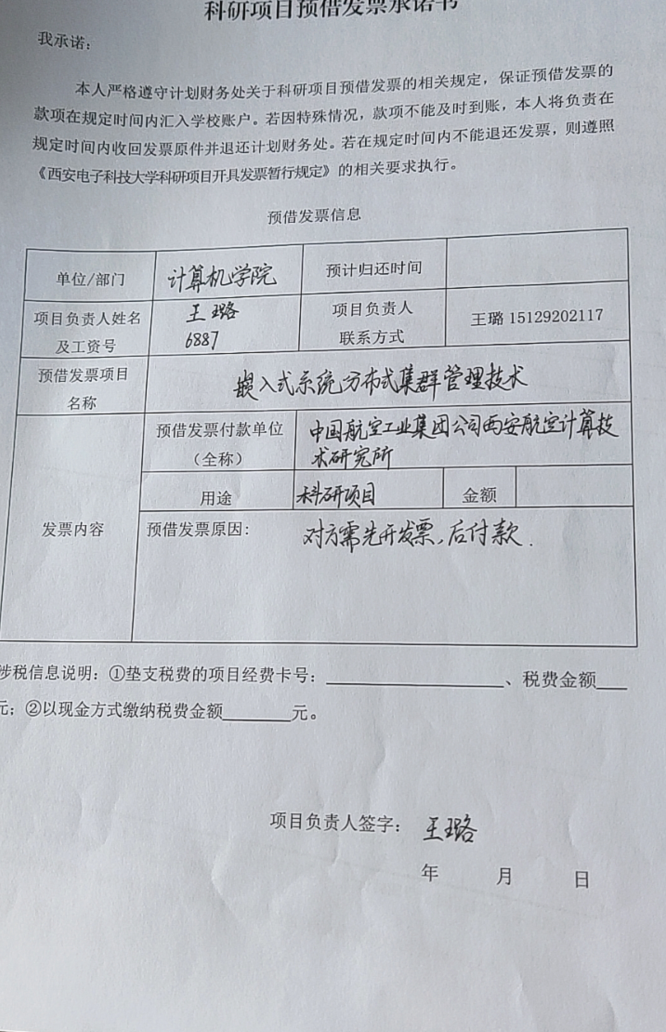 科研项目预借发票承诺书
我承诺：
本人严格遵守计划财务处关于科研项目预借发票的相关规定，保证预借发票的
款项在规定时间内汇入学校账户。若因特殊情况，款项不能及时到账，本人将负责在
规定时间内收回发票原件并退还计划财务处。若在规定时间内不能退还发票，则遵照
《西安电子科技大学科研项目开具发票暂行规定》的相关要求执行。
预借发票信息
单位/部门 计算机学院 预计归还时间
项目负责人姓名 王璐 项目负责人
及工资号 6887 联系方式 王璐 15129202117
预借发票项目
名称 嵌入式系统分布式集群管理技术
预借发票付款单位 中国航空工业集团公司西安航空计算技
（全称） 术研究所
用途 科研项目 金额
发票内容 预借发票原因: 对方需先开发票，后付款.
涉税信息说明：①垫支税费的项目经费卡号：________、税费金额___
元；②以现金方式缴纳税费金额_______元。
项目负责人签字： 王璐
年 月 日